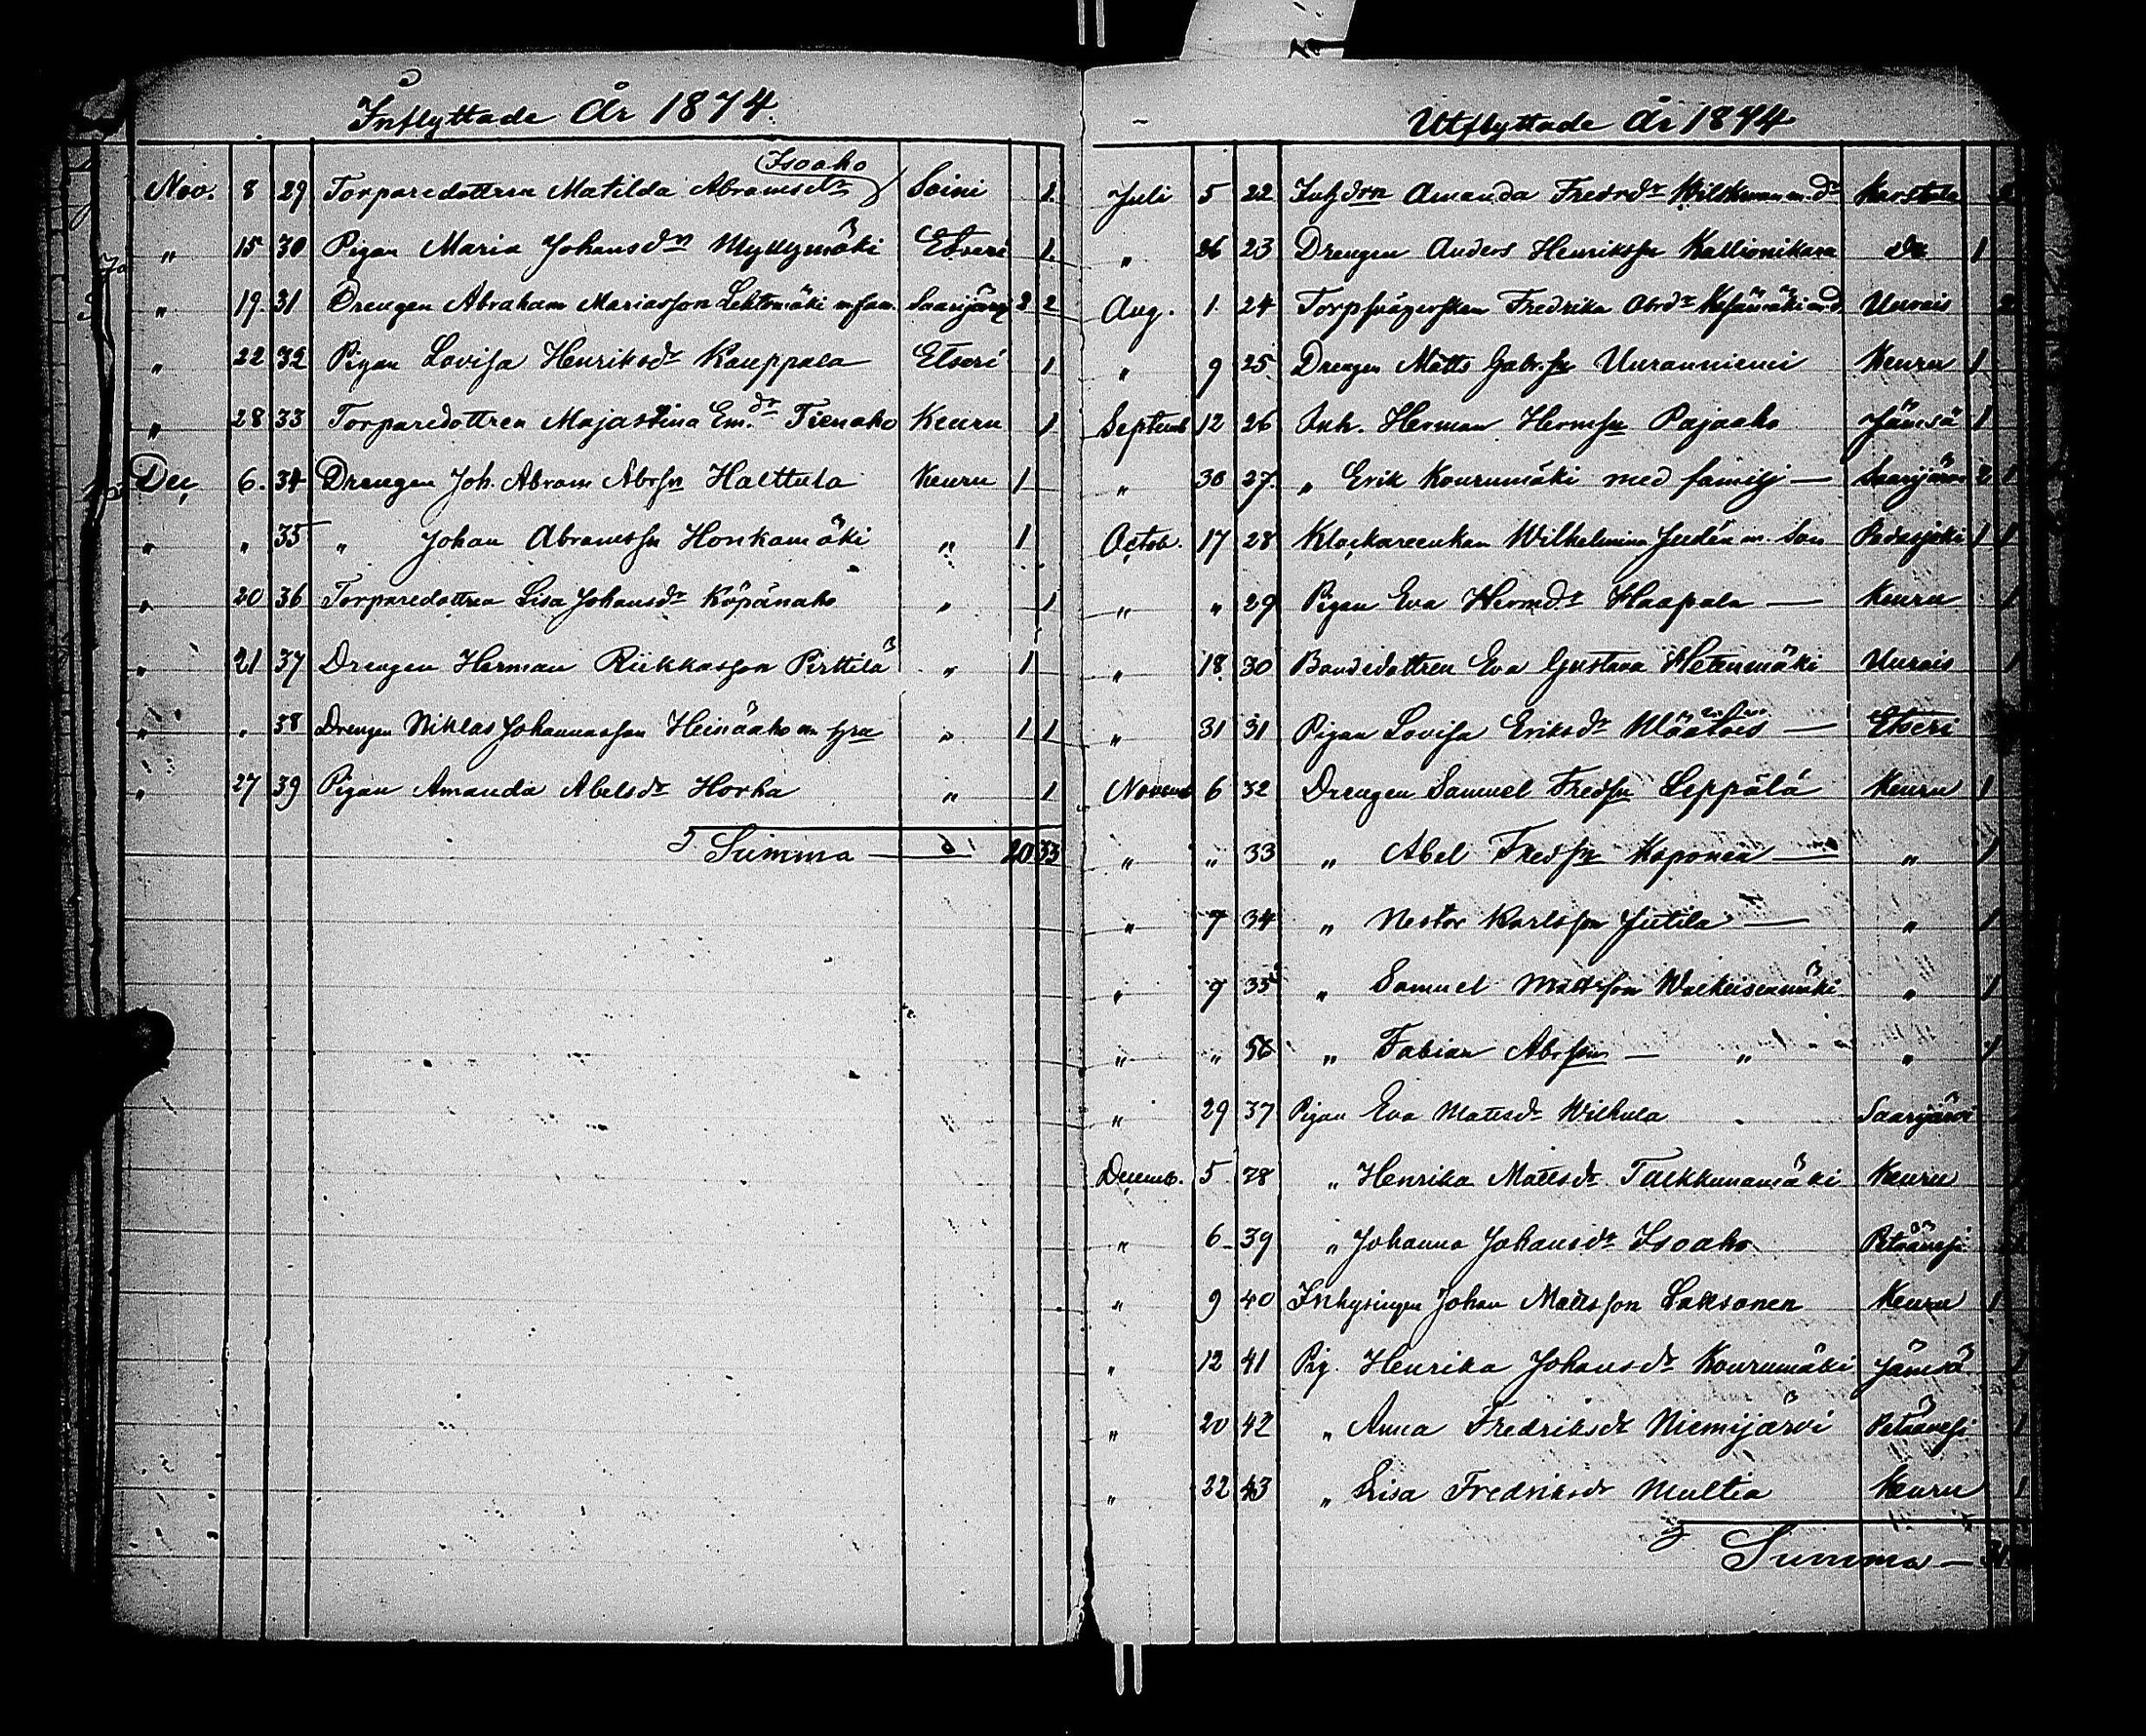 Inflyttade År 1874.
Isoaho
Nov. 8 29 Torparedottren Matilda Abramsdr Soini 1.
" 15 30 Pigan Maria Johansdr Myllymäki Etseri 1.
" 19. 31 Drengen Abraham Mariasson Lehtomäki m fam. Saarijärvi 2 2
" 22 32 Pigan Lovisa Henriksdr Kauppala Etseri 1
" 28 33 Torparedottren Majastina Em.dr Tienaho Keuru 1
Dec. 6. 34 Drengen Joh. Abram Abrsn Halttula Keuru 1
" " 35 " Johan Abramssn Honkamäki " 1
" 20 36 Torparedottren Lisa Johansdr Köpänaho " 1
" 21 37 Drengen Herman Riikkasson Pirttilä " 1
" " 38 Drengen Niklas Johannasson Heinäaho m " 1 1
" 27 39 Pigan Amanda Abelsdr Horha " 1
Summa — 20 33
Utflyttade År 1874
Juli 5 22 Amanda Fredrdr m. dr Karstula 2
" 26 23 Drengen Anders Henrikssn 1
Aug. 1. 24 Fredrika Abrdr Uurais 2
" 9 25 Drengen Matts Gabr.sn Uuranniemi Keuru 1
Septemb 12 26 Inh. Herman Hermsn Pajaaho Jämsä 1
" 30 27. " Erik Kourumäki med familj — Saarijärvi 2 1
Octob. 17 28 Klockareenkan Wilhelmina m. Son Padasjoki 1 1
" " 29 Pigan Eva Hermdr Haapala — Keuru 1
" 18. 30 Bondedottren Eva Gustava Hetenmäki Uurais 1
" 31 31 Pigan Lovisa Eriksdr — Etseri
Novemb 6 32 Drengen Samuel Fredsn Leppälä Keuru 1
" " 33 " Abel Fredsn Koponen — " 1
" 7 34 " Nestor Karlsson Jutila — " 1
" 9 35 " Samuel Mattsson " 1
" " 36 " Fabian Abrssn — " " 1
" 29 37 Pigan Eva Mattsdr Wilhula Saarijärvi
Decemb. 5 38 " Henrika Mattsdr Talkkunamäki Keuru
" 6 39 " Johanna Johansdr Isoaho Petäävesi
" 9 40 Inhysingen Johan Mattsson Laksonen Keuru 1
" 12 41 Pig. Henrika Johansdr Kourumäki Jämsä 1
" 20 42 " Anna Fredriksdr Niemijärvi Petäävesi 1
" 22 43 " Lisa Fredriksdr Multia Keuru 1
Summa —